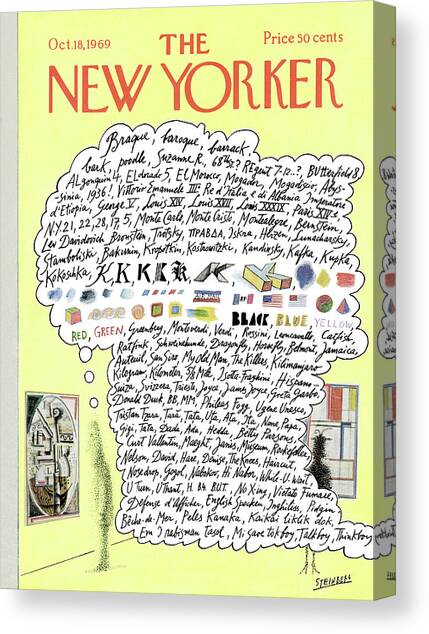 Oct. 18, 1969
THE
Price 50 cents
NEW YORKER
Braque, baroque, barrack,
bark, poodle, Suzanne R., 68th St? REgent 7-12..?, BUtterfield 8,
ALgonquin 4, ELdorado 5, EL Morocco, Mogador, Mogadiscio, Abys-
sinia, 1936! Vittorio Emanuele III Re d'Italia e di Albania Imperatore
d'Etiopia, George V, Louis XIV, Louis XVIII, Louis XXXIX, Paris XVIe,
NY 21, 22, 28, 17, 5, Monte Carlo, Monte Cristi, Montenegro, Bernstein
Lev Davidovich Bronstein, Trotsky, ПРАВДА, Iskra, Lunacharsky,
Stamboliski, Bakunin, Kropotkin, Kandinsky, Kafka, Kupka,
Kokoshka, K K K K K
AIR MAIL
BLACK, BLUE, YELLOW,
RED, GREEN, Greenberg, Monteverdi, Verdi, Rossini, Leoncavallo, Catfish,
Ratfink, Schweinhunde, Dragonfly, Horsefly, Belmont, Jamaica,
Auteuil, San Siro, My Old Man, The Killers, Kilimanjaro
Kilogram, Kilometer, 5/8 Mile, Isotta-Fraschini, Hispano
Suiza, Svizzera, Trieste, Joyce, James Joyce, Greta Garbo,
Donald Duck, BB, MM, Phileas Fogg, Ugene Onesco,
Tristan Tzara, Tarà, Tata, Uta, Ata, Ita, Nono, Papa,
Gigi, Tati, Dada, Ada, Hedda, Betty Parsons,
Curt Valentin, Maeght, Janis, Museum, Rockefeller,
Nelson, David, Hare, Denise, The Knees, Haircut,
Nose drop, Gogol, Nabokov, Hi Nabor, While-U-Wait
U Turn, U Thant, H. B4 BUT. No Xing, Vietato Fumare,
Défense d'Afficher, English Spoken, Inghilos, Pidgin
Bêche-de-Mer, Peles Kanaka, Kaikai liklik dok,
Em I rabisman tasol, Mi save tokboy, Talkboy, Thinkboy
STEINBERG